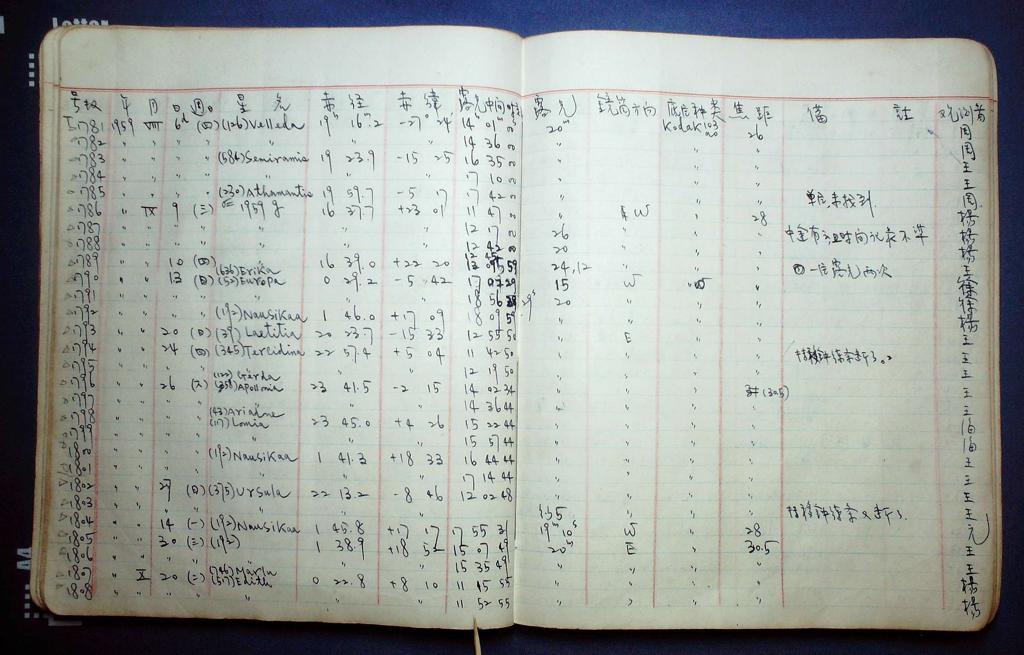 号数 年 月 日 週日 星名 赤经 赤緯 露光中间时刻 露光 镜筒方向 底片种类 焦距 備註 观测者
1781 1959 VIII 6d (四) (126) Velleda 19h 16m.2 -27° 24' 14h 01m 00 20m Kodak 103 a0 26 周
1782 " " " " " " 14 36 00 " " " 周
1783 " " " (584) Semiramis 19 23.9 -15 25 16 35 00 " " " 王
1784 " " " " " " 17 10 00 " " " 王
1785 " " " (230) Athamantis 19 59.7 -5 17 17 42 00 " " " 周
1786 " IX 9 (三) 1959 g 16 37.7 +23 01 11 47 00 " W " 28 楊
1787 " " " " " " 12 17 00 26 " " " 楊
1788 " " " " " " 12 42 00 20 " " " 楊
1789 " " 10 (四) " 16 39.0 +22 20 24,12 " " " 一底露光两次 王
1790 " " 13 (日) (636) Erika (52) Europa 0 29.2 -5 42 17 15 W "
1791 " " " " " " 18 56 20 " " "
1792 " " " (192) Nausikaa 1 46.0 +17 09 18 09 59 " " " " 楊
1793 " " 20 (日) (39) Laetitia 20 23.7 -15 33 12 55 50 " E " " 王
1794 " " 24 (四) (345) Tercidina 22 57.4 +5 04 11 42 50 " " " " 王
1795 " " " " " " 12 19 50 " " " " 王
1796 " " 26 (六) (122) Gerda (358) Apollonia 23 41.5 -2 15 14 02 34 " " " (30.5) 王
1797 " " " " " " 14 36 44 " " " " 王
1798 " " " (43) Ariadne (117) Lomia 23 45.0 +4 26 15 22 44 " " " "
1799 " " " " " " 15 57 44 " " " "
1800 " " " (192) Nausikaa 1 41.3 +18 33 16 44 44 " " " " 王
1801 " " " " " " 17 14 44 " " " " 王
1802 " " 27 (日) (375) Ursula 22 13.2 -8 46 12 02 48 " " " " 王
1803 " " " " " " " " " 王
1804 " " 14 (一) (192) Nausikaa 1 45.8 +17 17 17 55 31 19m 10s W " 28
1805 " " 30 (三) (192) 1 38.9 +18 52 15 07 49 20m E " 30.5 王
1806 " " " " " " 15 35 49 " " " " 王
1807 " X 20 (二) (746) Marlu (517) Edith 0 22.8 +8 10 11 15 55 " " " " 楊
1808 " " " " " " 11 52 55 " " " " 楊